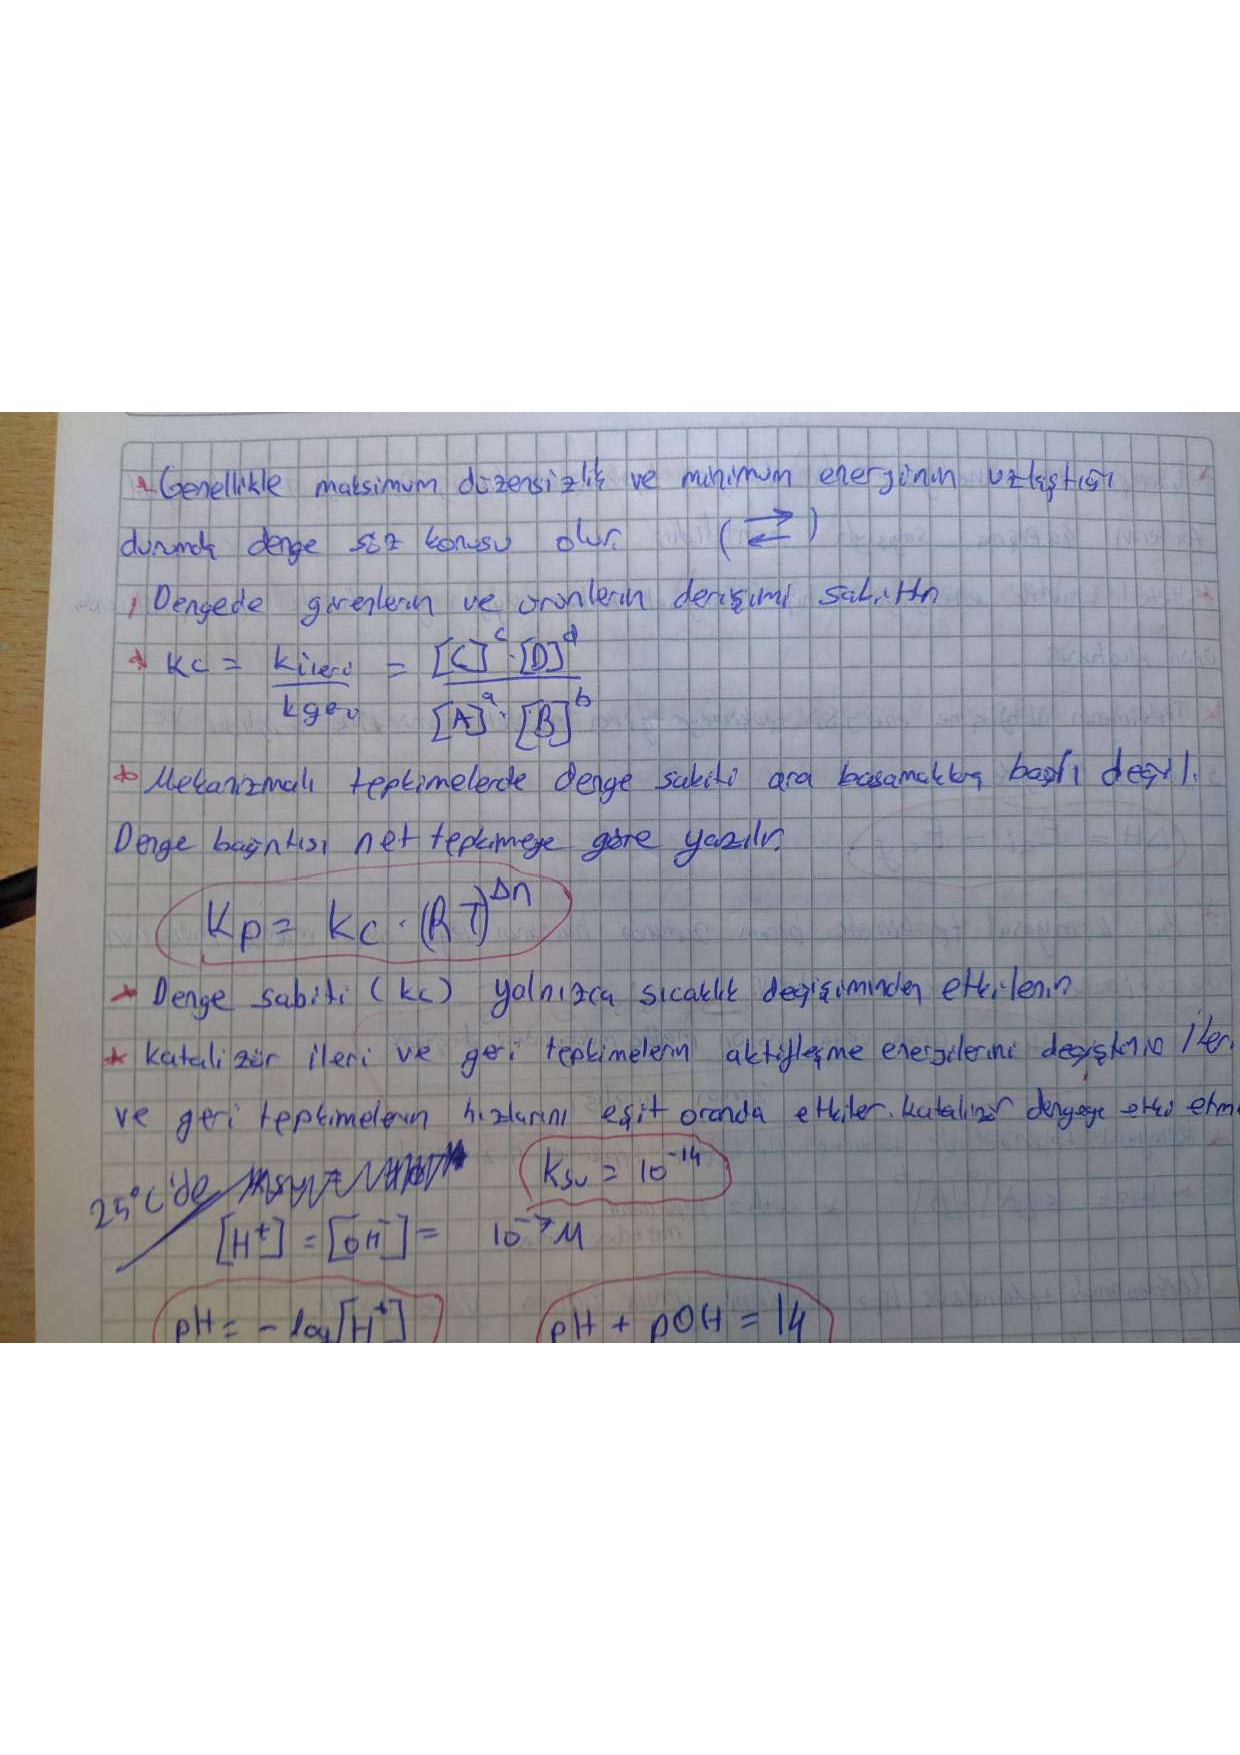 * Genellikle maksimum düzensizlik ve minimum enerjinin uzlaştığı
durumda denge söz konusu olur. (⇄)
* Dengede girenlerin ve ürünlerin derişimi sabittir
* Kc = kileri / kgeri = [C]^c · [D]^d / [A]^a · [B]^b
* Mekanizmalı tepkimelerde denge sabiti ara basamaklara bağlı değil.
Denge bağıntısı net tepkimeye göre yazılır.
Kp = kc · (RT)^Δn
* Denge sabiti (kc) yalnızca sıcaklık değişiminden etkilenir
* katalizör ileri ve geri tepkimelerin aktifleşme enerjilerini değiştirir ileri
ve geri tepkimelerin hızlarını eşit oranda etkiler. katalizör dengeye etki etm
25°C'de
ksu = 10^-14
[H+] = [OH-] = 10^-7 M
pH = - log[H+] pH + pOH = 14